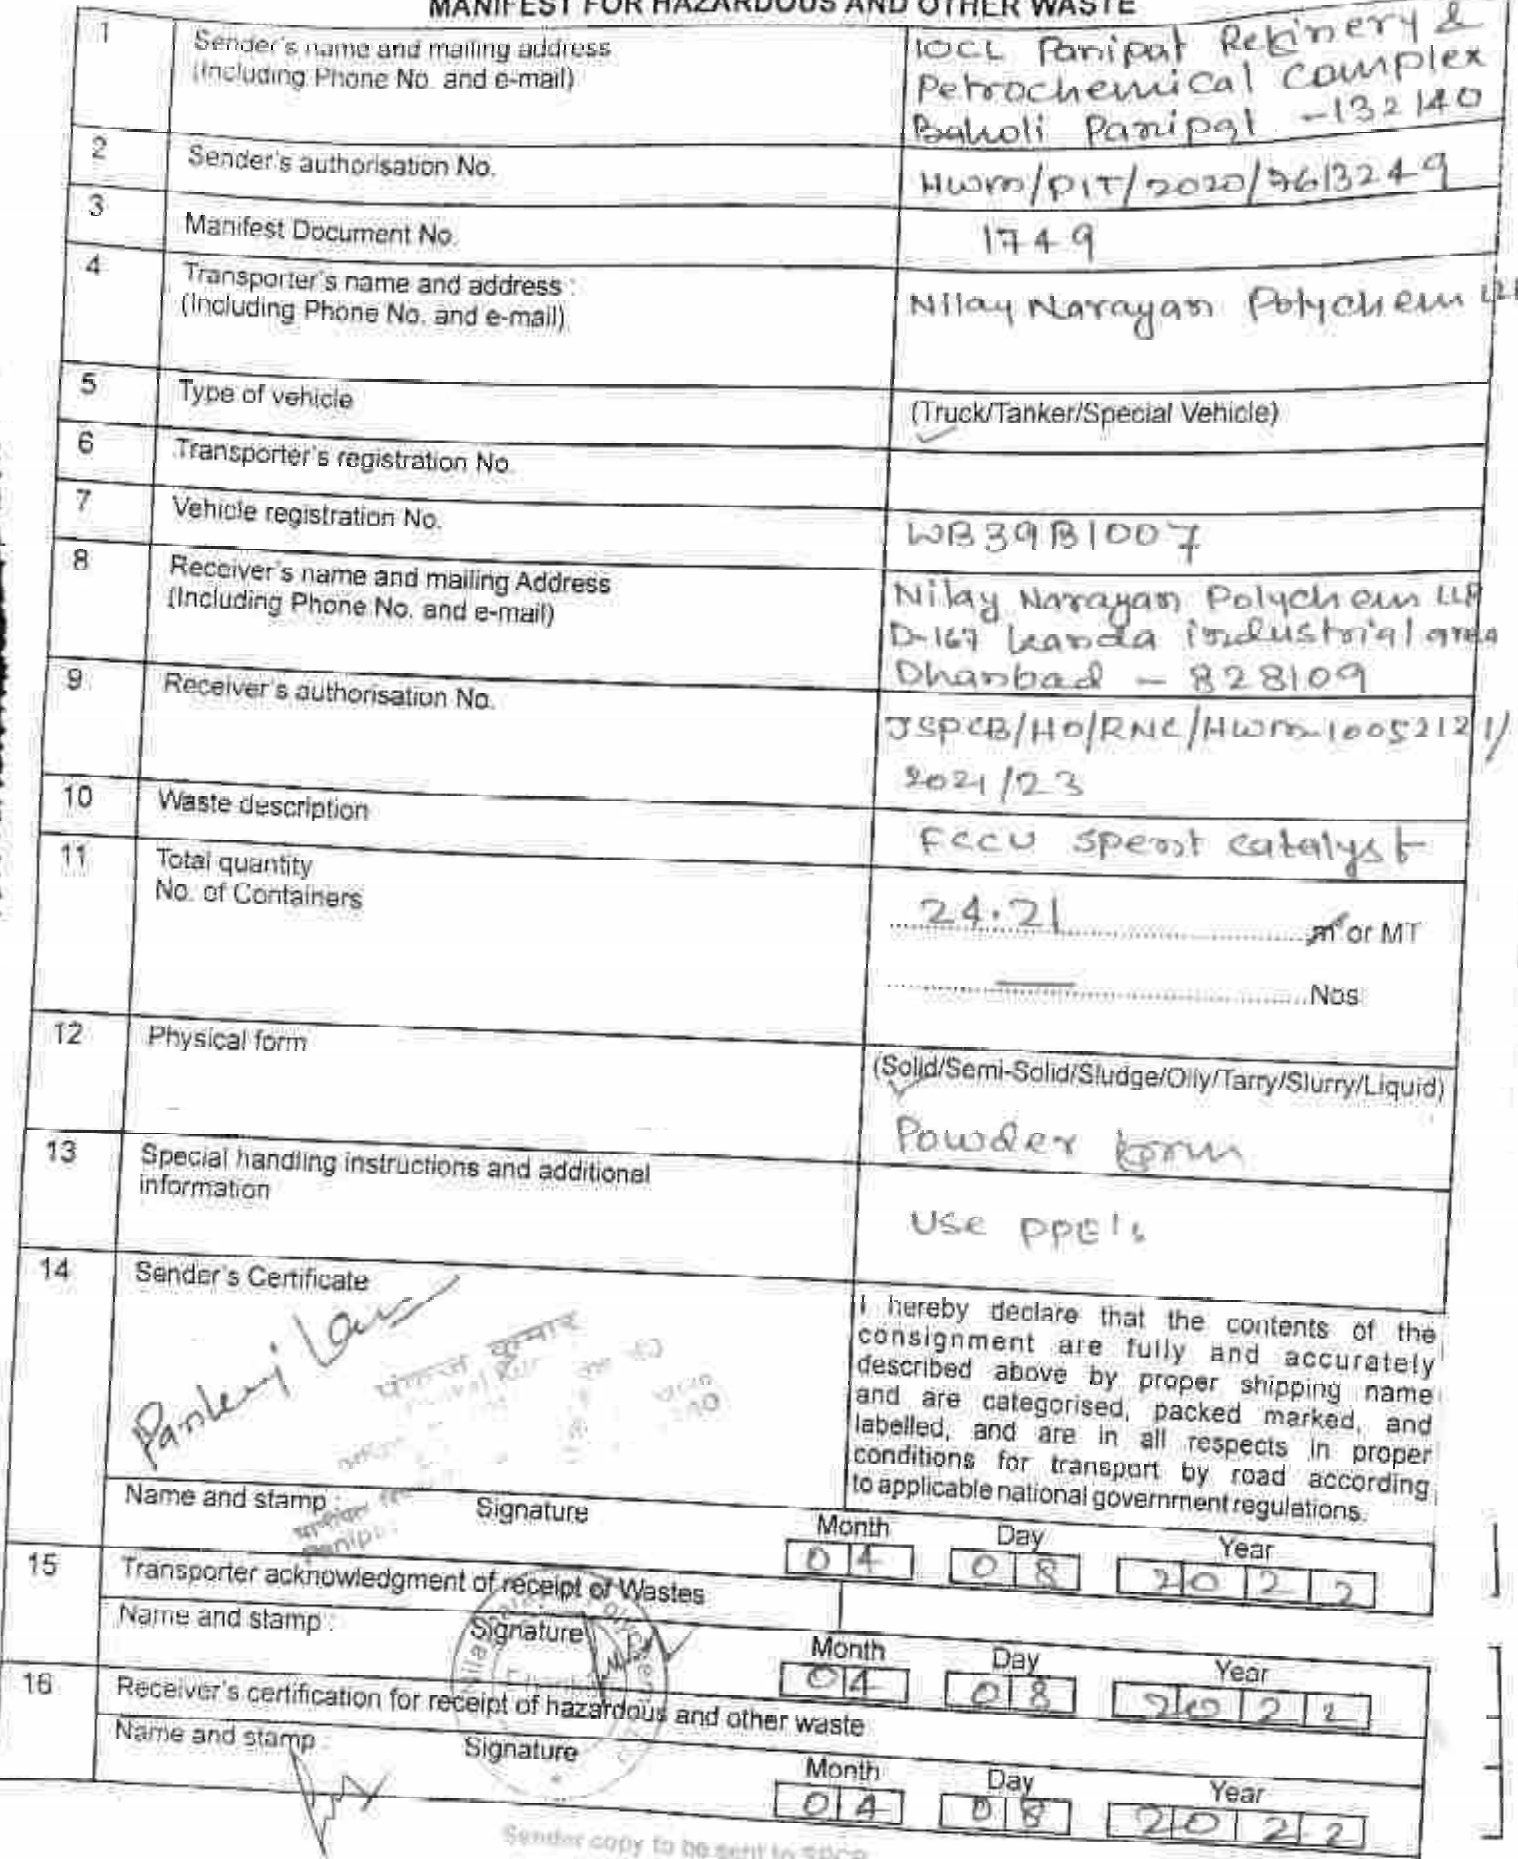 MANIFEST FOR HAZARDOUS AND OTHER WASTE
1 Sender's name and mailing address
(Including Phone No. and e-mail)
IOCL Panipat Refinery &
Petrochemical Complex
Baholi Panipat -132140
2 Sender's authorisation No.
HWM/PIT/2020/7613249
3 Manifest Document No.
1749
4 Transporter's name and address :
(Including Phone No. and e-mail)
Nilay Narayan Polychem
5 Type of vehicle
(Truck/Tanker/Special Vehicle)
6 Transporter's registration No
7 Vehicle registration No.
WB39B1007
8 Receiver's name and mailing Address
(Including Phone No. and e-mail)
Nilay Narayan Polychem LLP
D-167 kanda industrial area
Dhanbad - 828109
9 Receiver's authorisation No.
JSPCB/HO/RNC/HWM-10052121/
2021/23
10 Waste description
FCCU Spent catalyst
11 Total quantity
No. of Containers
24.21 or MT
Nos
12 Physical form
(Solid/Semi-Solid/Sludge/Oily/Tarry/Slurry/Liquid)
Powder form
13 Special handling instructions and additional
information
Use PPE's
14 Sender's Certificate
I hereby declare that the contents of the
consignment are fully and accurately
described above by proper shipping name
and are categorised, packed marked, and
labelled, and are in all respects in proper
conditions for transport by road according
to applicable national government regulations.
Pankaj
पंकज कुमार
Name and stamp : Signature
Month Day Year
04 08 2022
15 Transporter acknowledgment of receipt of Wastes
Name and stamp : Signature
Month Day Year
04 08 2022
16 Receiver's certification for receipt of hazardous and other waste
Name and stamp : Signature
Month Day Year
04 08 2022
Sender copy to be sent to SPCB